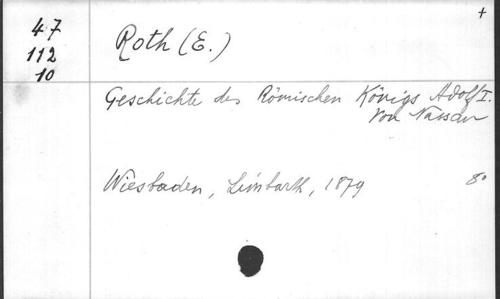 +
47
112
10
Roth (E.)
Geschichte des Römischen Königs Adolf I.
von Nassau
Wiesbaden, Limbarth, 1879 8°